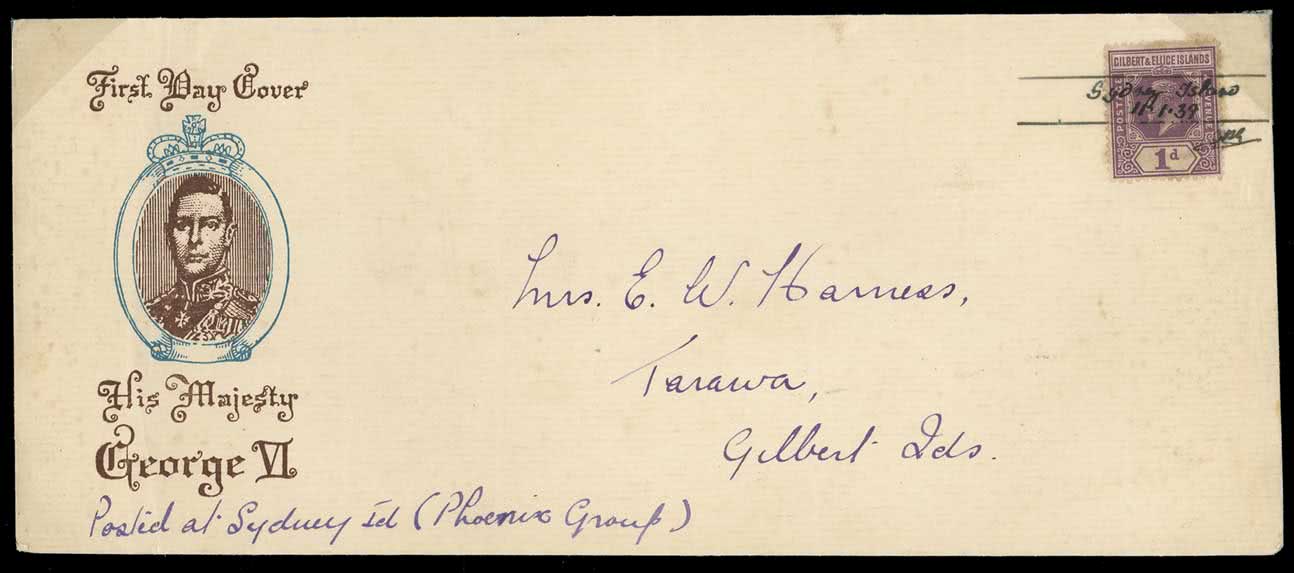 First Day Cover
GILBERT & ELLICE ISLANDS
POSTAGE
REVENUE
Sydney Island
11.1.39
1d
Mrs. E. W. Harness,
Tarawa,
Gilbert Ids.
His Majesty
George VI
Posted at Sydney Id (Phoenix Group)